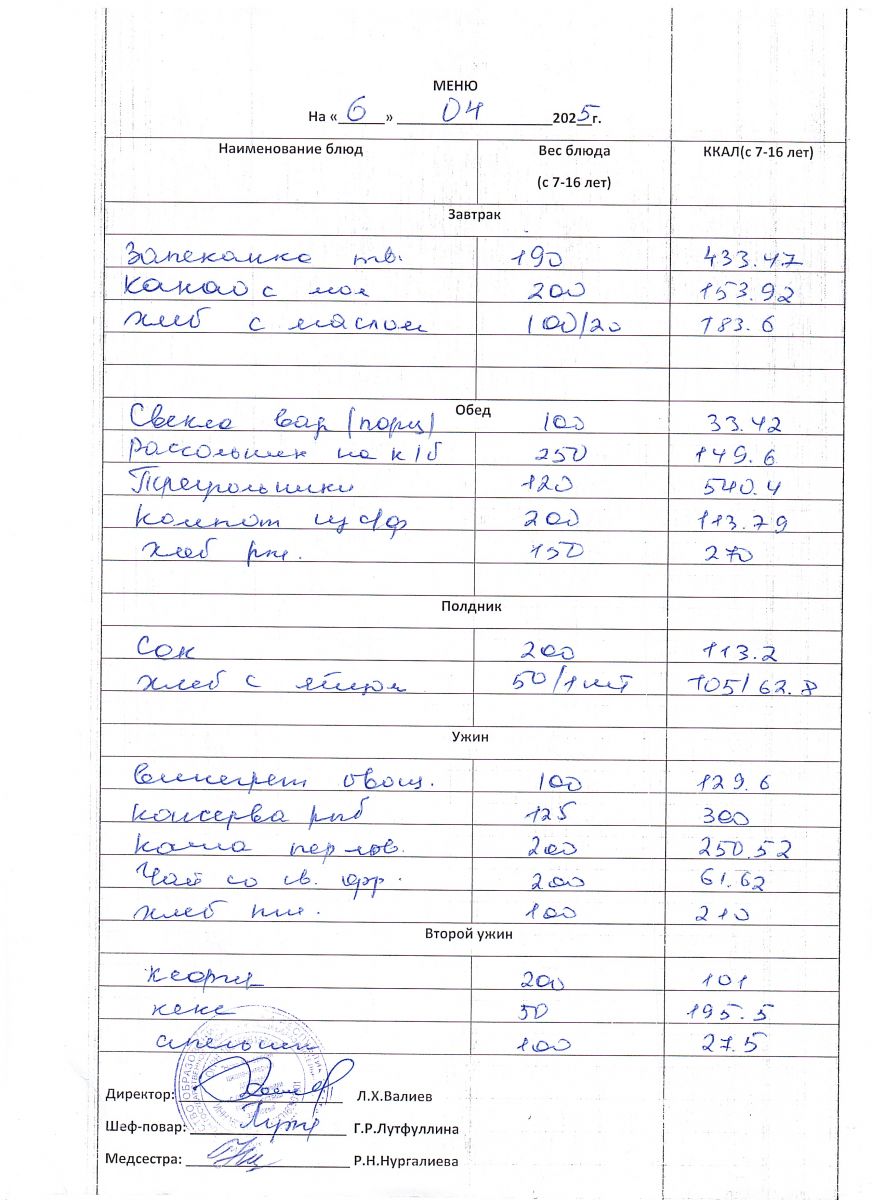 МЕНЮ
На «6» 04 2025г.
Наименование блюд Вес блюда (с 7-16 лет) ККАЛ(с 7-16 лет)
Завтрак
Запеканка тв. 190 433.47
Какао с мол 200 153.92
Хлеб с маслом 100/20 183.6
Обед
Свекла вар (порц) 100 33.42
Рассольник на к/б 250 149.6
Треугольники 120 540.4
Компот из с/ф 200 113.79
Хлеб рж. 150 270
Полдник
Сок 200 113.2
Хлеб с яйцом 50/1шт 105/62.8
Ужин
Винегрет овощ. 100 129.6
Консерва рыб 125 300
Каша перлов. 200 250.52
Чай со св. фр. 200 61.62
Хлеб пш. 100 210
Второй ужин
200 101
кекс 50 195.5
апельсин 100 27.5
Директор: Л.Х.Валиев
Шеф-повар: Г.Р.Лутфуллина
Медсестра: Р.Н.Нургалиева